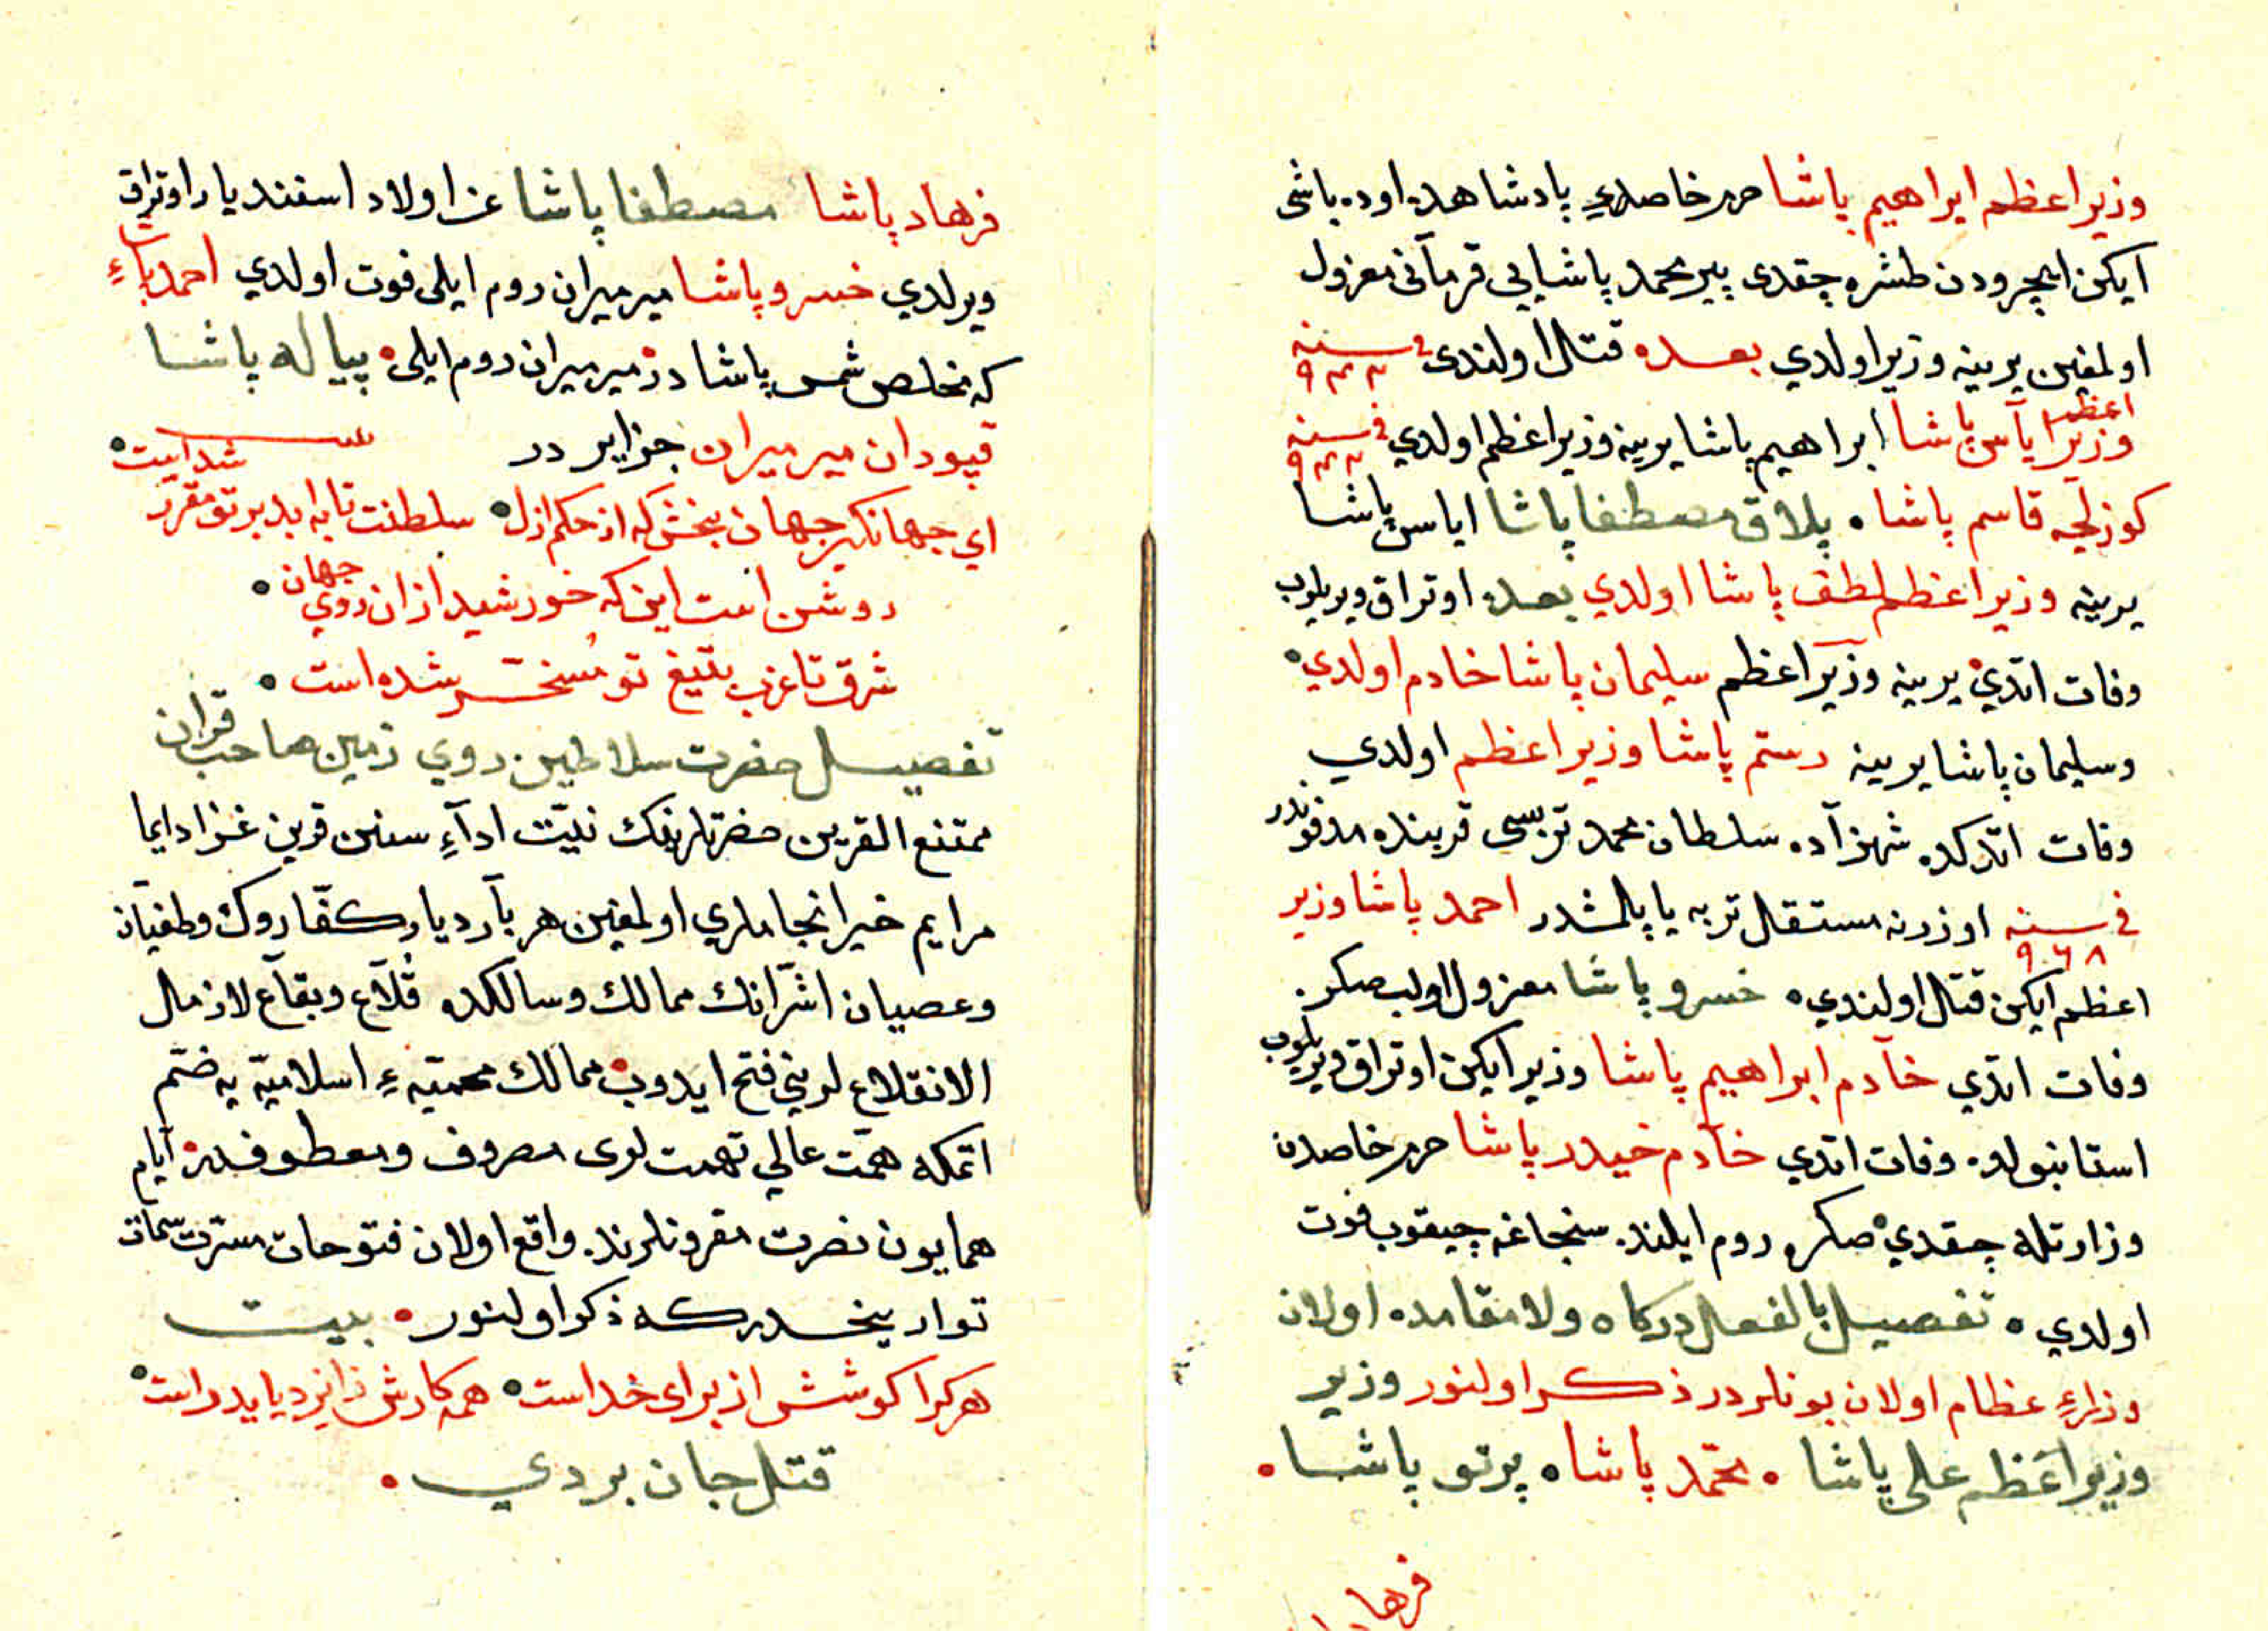 وزير اعظم ابراهيم پاشا حرم خاصهءِ پادشاهده اوده باشى
ايكن ايچرودن طشره چقدى پير محمد پاشايى قرمآنى معزول
اولمغين يرينه وزير اولدي بعده قتال اولندى فى سنه ٩٤٢
وزير اعظم اياس پاشا ابراهيم پاشا يرينه وزير اعظم اولدي فى سنه ٩٤٢
كوزلجه قاسم پاشا • پلاق مصطفا پاشا اياس پاشا
يرينه وزير اعظم لطف پاشا اولدي بعده اوتراق ويريلوب
وفات اتدي يرينه وزير اعظم سليمان پاشا خادم اولدي•
وسليمان پاشا يرينه رستم پاشا وزير اعظم اولدي
وفات اتدكده شهزآده سلطان محمد تربسى قربنده مدفوندر
فى سنه ٩٦٨ اوزرنه مستقل تربه يا پلمشدر احمد پاشا وزير
اعظم ايكن قتال اولندوي • خسرو پاشا معزول اولب صكره
وفات اتدي خآدم ابراهيم پاشا وزير ايكن اوتراق ويريلوب
استانبولده وفات اتدي خآدم خيدر پاشا حرم خاصدن
وزارتله چقدي صكره روم ايلنده سنجاغه چيقوب فوت
اولدي • تفصيل بالفعل دركاه ولا مقامده اولان
وزارءِ عظام اولان بونلردر ذكر اولنور وزير
وزير اعظم على پاشا • محمد پاشا • پرتو پاشا •
فرها
فرهاد پاشا مصطفا پاشا عن اولاد اسفنديار اوتراق
ويرلدي خسرو پاشا مير ميران روم ايلى فوت اولدي احمد پاءِ
كه مخلص شمس پاشا در مير ميران روم ايلى • پياله پاشا
قپودان مير ميران جزاير در
اي جهانكير جهان بخش كه از حكم ازل • سلطنت تا به ابد بر تو مقرر شد است •
روشن است اين كه خورشيد ازان روي جهان •
شرق تا غرب بتيغ تو مسخر شده است •
تفصيل حضرت سلاطين روي زمين صاحب قران
ممتنع القرين حضرتلرينك نيّت ادآءِ سنن قرين غزا دايما
مرايم خير انجاملري اولمغين هر بآر ديار كفّار وك وطغيآن
وعصيان اشّرانك ممالك وسالكده قُلآع وبقآع لازمال
الانقلاع لريني فتح ايدوب ممالك محميّهءِ اسلاميّه يه ضمّ
اتمكه همّت عالي نهمت لرى مصروف ومعطوفدر ايام
همايون نصرت مقرونلرنده واقع اولان فتوحات مسرّت سمات
تواريخدركه ذكر اولنور • بيت
هركرا كوشش از براى خداست • همه كارش ز ايزد يايد راست •
قتل جان بردي •